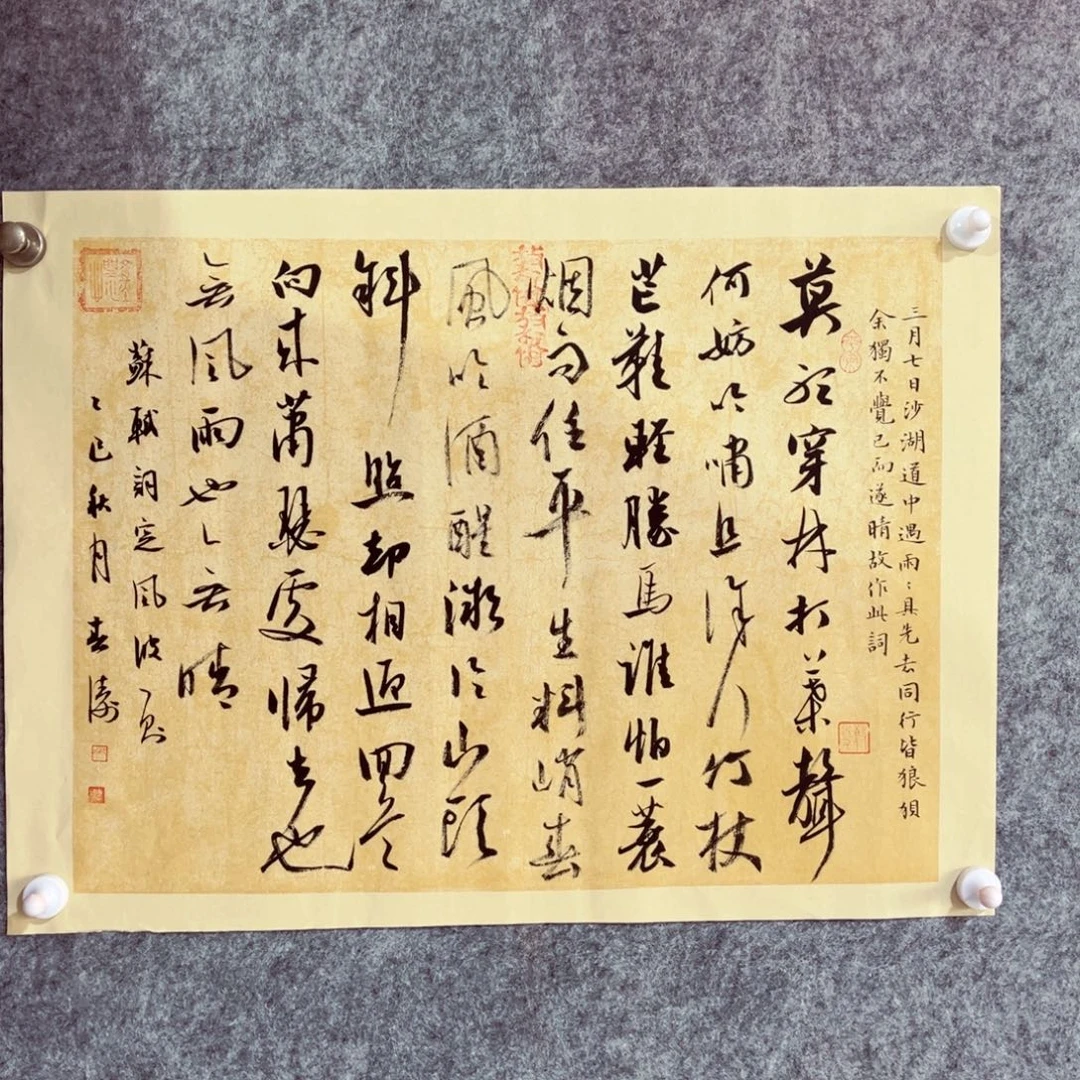 三月七日沙湖道中遇雨〻具先去同行皆狼狽
余獨不覺已而遂晴故作此詞
莫聽穿林打葉聲
何妨吟嘯且徐行竹杖
芒鞋輕勝馬誰怕一蓑
烟雨任平生料峭春
風吹酒醒微冷山頭
斜照却相迎回首
向来蕭瑟處歸去也
無風雨也〻無晴
蘇軾詞定風波一則
乙巳秋月春濤